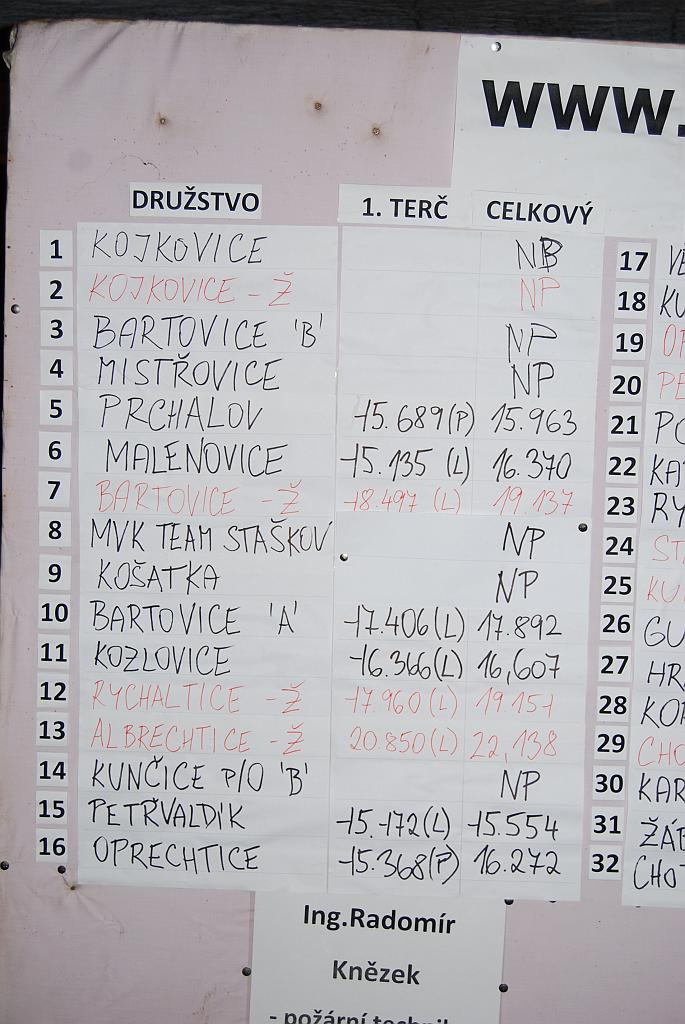 WWW.
DRUŽSTVO 1. TERČ CELKOVÝ
1 KOJKOVICE
2 KOJKOVICE - Ž NP
3 BARTOVICE 'B' NP
4 MISTŘOVICE NP
5 PRCHALOV 15.689 (P) 15.963
6 MALENOVICE 15.135 (L) 16.370
7 BARTOVICE - Ž 18.497 (L) 19.137
8 MVK TEAM STAŠKOV NP
9 KOŠATKA NP
10 BARTOVICE 'A' 17.406 (L) 17.892
11 KOZLOVICE 16.366 (L) 16,607
12 RYCHALTICE - Ž 17.960 (L) 19.151
13 ALBRECHTICE - Ž 20.850 (L) 22,138
14 KUNČICE P/O 'B' NP
15 PETŘVALDÍK 15.172 (L) 15.554
16 OPRECHTICE 15.368 (P) 16.272
17
18 KU
19
20 PE
21 PO
22 KAT
23 RY
24 ST
25 KU
26 GU
27 HR
28
29 CHO
30 KAR
31 ŽÁB
32 CHOT
Ing.Radomír
Knězek
- požární technik